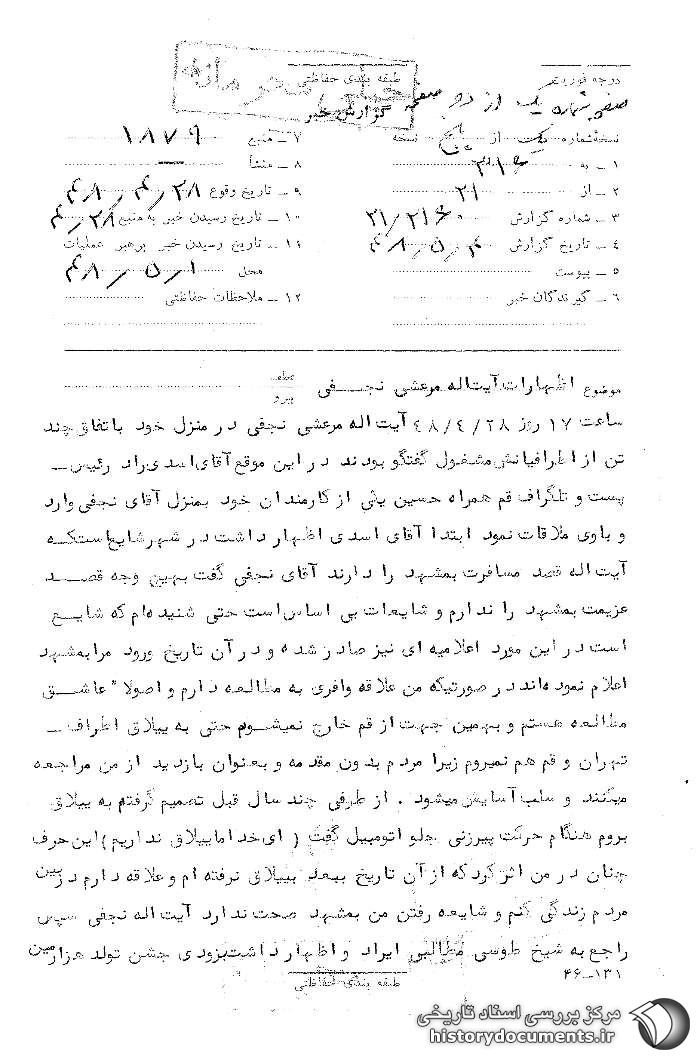 درجه فوریت
طبقه بندی حفاظتی
خیلی محرمانه
صفحه شماره یک از دو صفحه
گزارش خبر
نسخه شماره یک از پنج نسخه
۱ ـ به ۳۱۶
۲ ـ از ۲۱
۳ ـ شماره گزارش ۲۱/۲۱۶۰
۴ ـ تاریخ گزارش ۴۸/۵/۴
۵ ـ پیوست
۶ ـ گیرندگان خبر
۷ ـ منبع ۱۸۷۹
۸ ـ منشأ
۹ ـ تاریخ وقوع ۴۸/۴/۲۸
۱۰ ـ تاریخ رسیدن خبر به منبع ۴۸/۴/۲۸
۱۱ ـ تاریخ رسیدن خبر برهبر عملیات
محل ۴۸/۵/۱
۱۲ ـ ملاحظات حفاظتی
موضوع اظهارات آیت اله مرعشی نجفی
عطف
پیرو
ساعت ۱۷ روز ۴۸/۴/۲۸ آیت اله مرعشی نجفی در منزل خود باتفاق چند
تن از اطرافیانش مشغول گفتگو بودند در این موقع آقای اسدی راد رئیس ـ
پست و تلگراف قم همراه حسین یلی از کارمندان خود بمنزل آقای نجفی وارد
و باوی ملاقات نمود ابتدا آقای اسدی اظهار داشت در شهر شایع استکه
آیت اله قصد مسافرت بمشهد را دارند آقای نجفی گفت بهیچ وجه قصد
عزیمت بمشهد را ندارم و شایعات بی اساس است حتی شنیده ام که شایع
است در این مورد اعلامیه ای نیز صادر شده و در آن تاریخ ورود مرا بمشهد
اعلام نموده اند در صورتیکه من علاقه وافری به مطالعه دارم و اصولا" عاشق
مطالعه هستم و بهمین جهت از قم خارج نمیشوم حتی به ییلاق اطراف ـ
تهران و قم هم نمیروم زیرا مردم بدون مقدمه و بعنوان بازدید از من مراجعه
میکنند و سلب آسایش میشود . از طرفی چند سال قبل تصمیم گرفتم به ییلاق
بروم هنگام حرکت پیرزنی جلو اتومبیل گفت ( ای خدا ما ییلاق نداریم ) این حرف
چنان در من اثر کرد که از آن تاریخ ببعد بییلاق نرفته ام و علاقه دارم در بین
مردم زندگی کنم و شایعه رفتن من بمشهد صحت ندارد آیت اله نجفی سپس
راجع به شیخ طوسی مطالبی ایراد و اظهار داشت بزودی جشن تولد هزارمین
طبقه بندی حفاظتی
۴۶-۱۳۱
مرکز بررسی اسناد تاریخی
historydocuments.ir